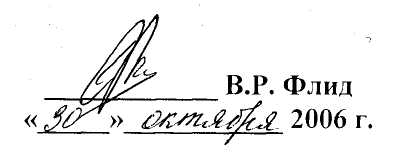 В.Р. Флид
«30» октября 2006 г.